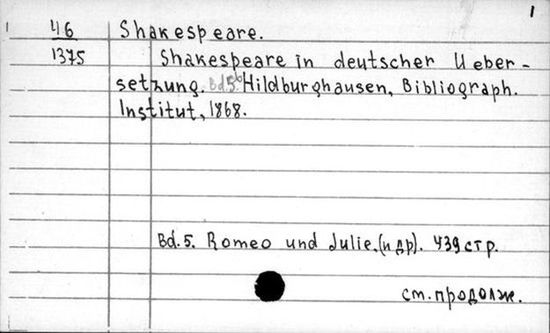 1
46 Shakespeare.
1375 Shakespeare in deutscher Ueber-
setzung. Bd.5. Hildburghausen, Bibliograph.
Institut, 1868.
Bd. 5. Romeo und Julie, (и др). 439 стр.
см. продолж.